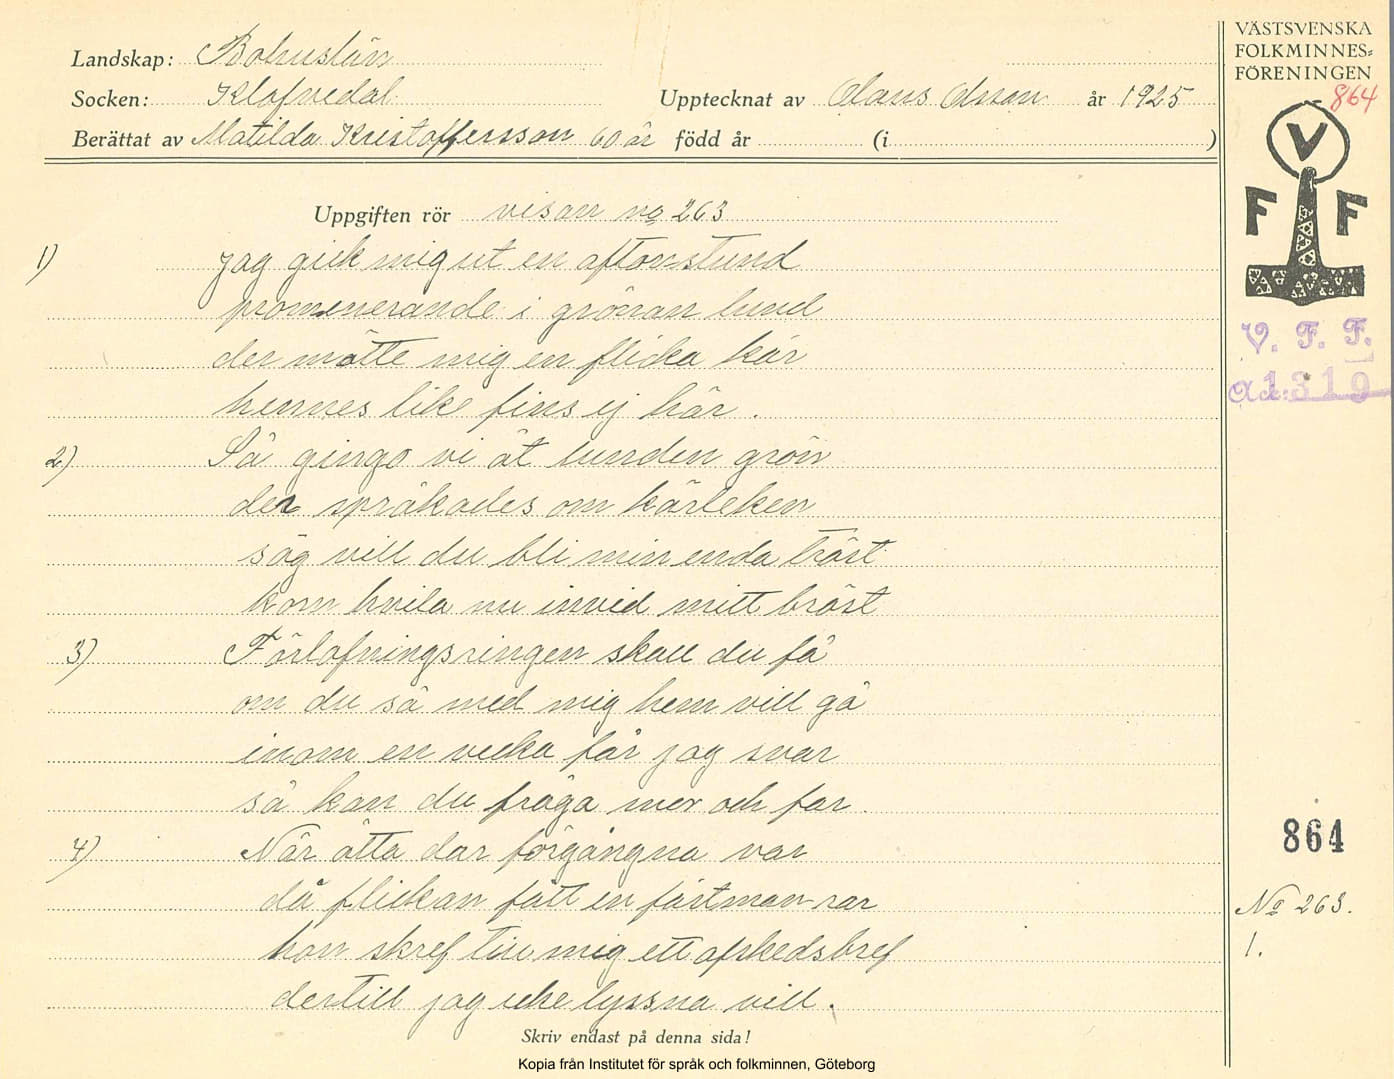 Landskap: Bohuslän
Socken: Klöfvedal
Upptecknat av Olaus Olsson år 1925
Berättat av Matilda Kristoffersson 60 år född år (i )
Uppgiften rör visan no 263
1) jag gick mig ut en aftonstund
promenerande i grönan lund
der mötte mig en flicka kär
hennes like fins ej här.
2) Så gingo vi åt lunden grön
der språkades om kärleken
säg vill du bli min enda tröst
kom hvila nu invid mitt bröst
3) Förlofningsringen skall du få
om du så med mig hem vill gå
inom en vecka får jag svar
så kan du fråga mor och far
4) När åtta dar förgångna var
då flickan fått en fästman rar
hon skref till mig ett afskedsbref
dertill jag icke lyssna vill.
Skriv endast på denna sida!
Kopia från Institutet för språk och folkminnen, Göteborg
VÄSTSVENSKA
FOLKMINNES=
FÖRENINGEN
864
V
F F
V. F. F.
Acc: 1319
864
No 263.
1.